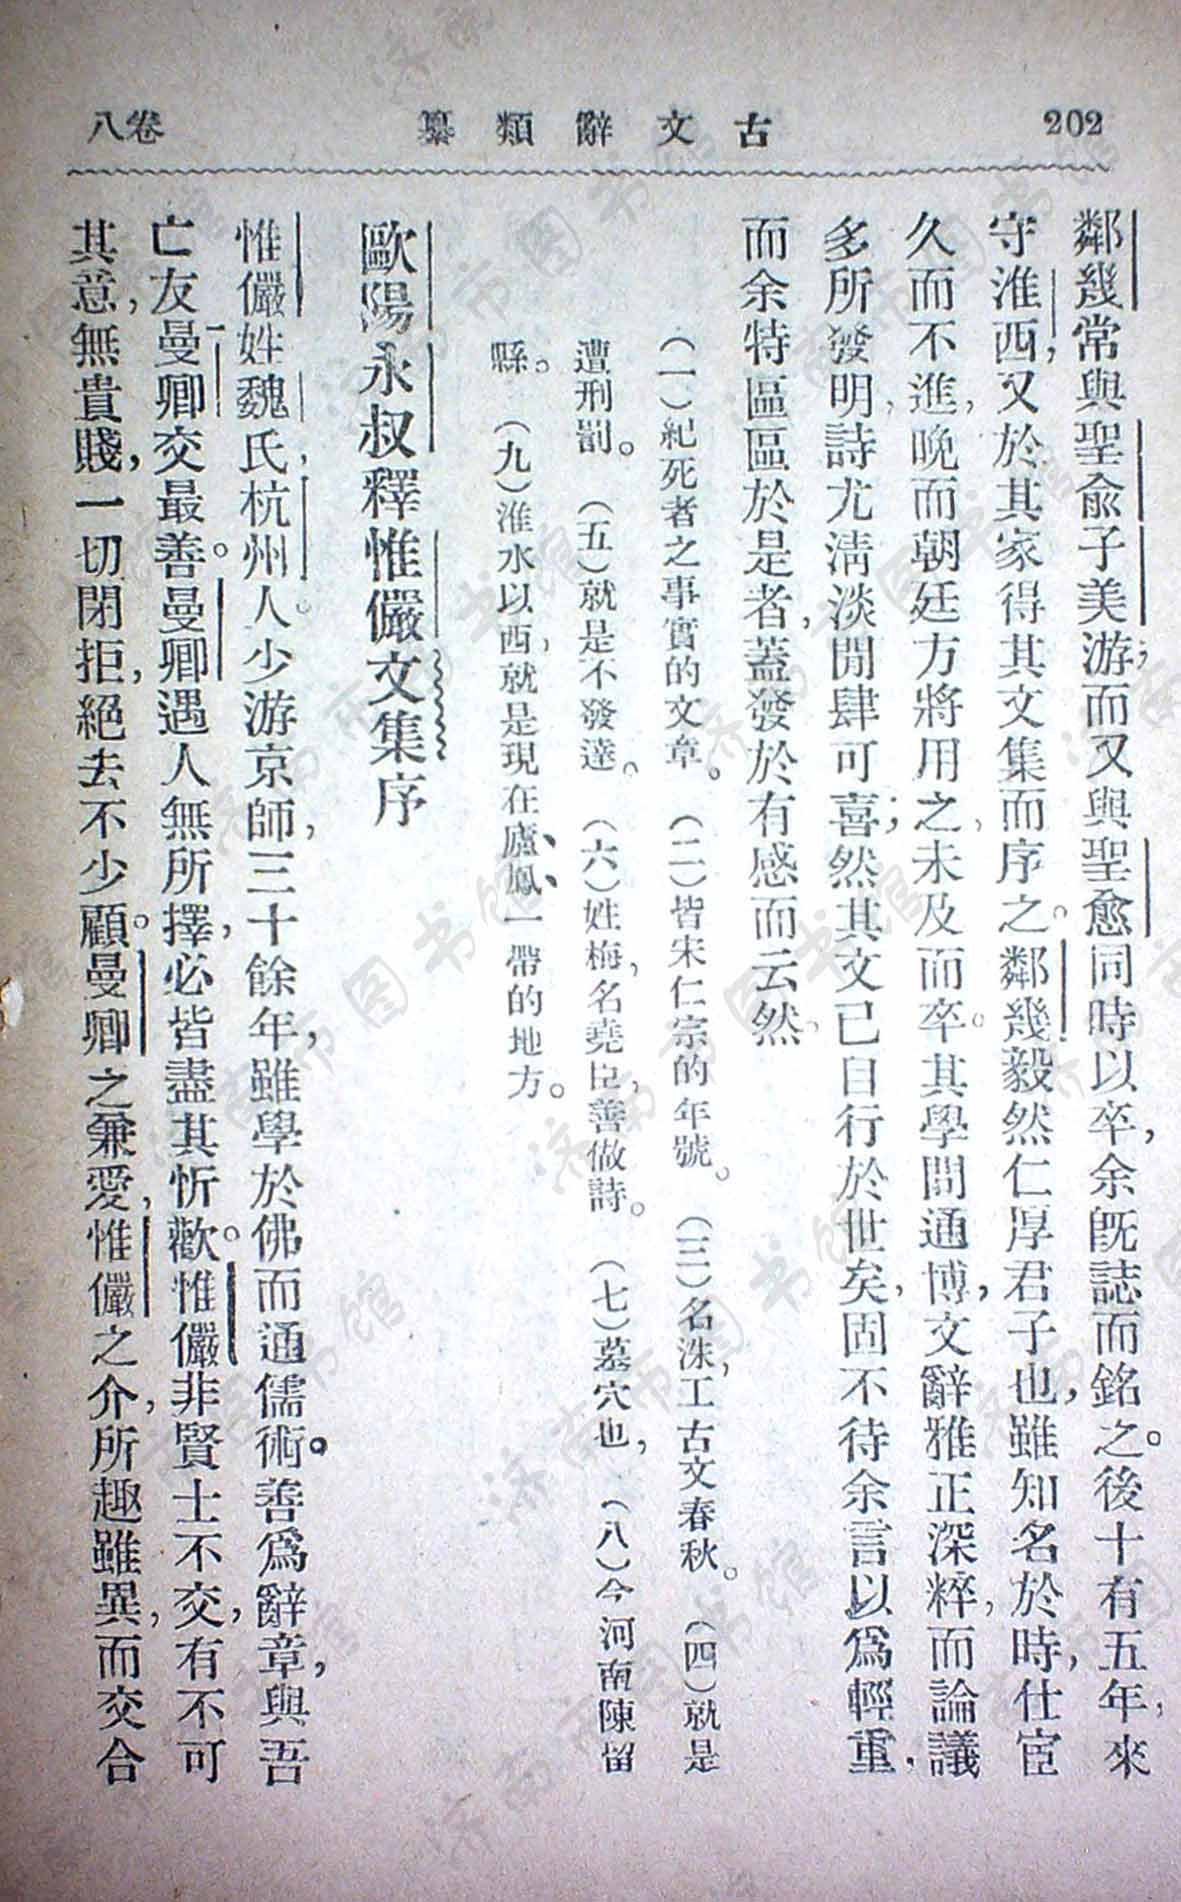 202
古文辭類纂
卷八
鄰幾常與聖俞子美游;而又與聖愈同時以卒,余旣誌而銘之。後十有五年,來
守淮西,又於其家得其文集而序之。鄰幾毅然仁厚君子也,雖知名於時,仕宦
久而不進,晚而朝廷方將用之,未及而卒。其學問通博,文辭雅正深粹,而論議
多所發明,詩尤淸淡閒肆可喜;然其文已自行於世矣,固不待余言以爲輕重,
而余特區區於是者,蓋發於有感而云然。
(一)紀死者之事實的文章。(二)皆宋仁宗的年號。(三)名洙,工古文春秋。(四)就是
遭刑罰。(五)就是不發達。(六)姓梅,名堯臣,善做詩。(七)墓穴也,(八)今河南陳留
縣。(九)淮水以西,就是現在廬、鳳、一帶的地方。
歐陽永叔釋惟儼文集序
惟儼姓魏氏,杭州人。少游京師,三十餘年,雖學於佛而通儒術。善爲辭章,與吾
亡友曼卿交最善。曼卿遇人無所擇,必皆盡其忻歡。惟儼非賢士不交,有不可
其意,無貴賤,一切閉拒,絕去不少顧。曼卿之兼愛,惟儼之介,所趣雖異,而交合